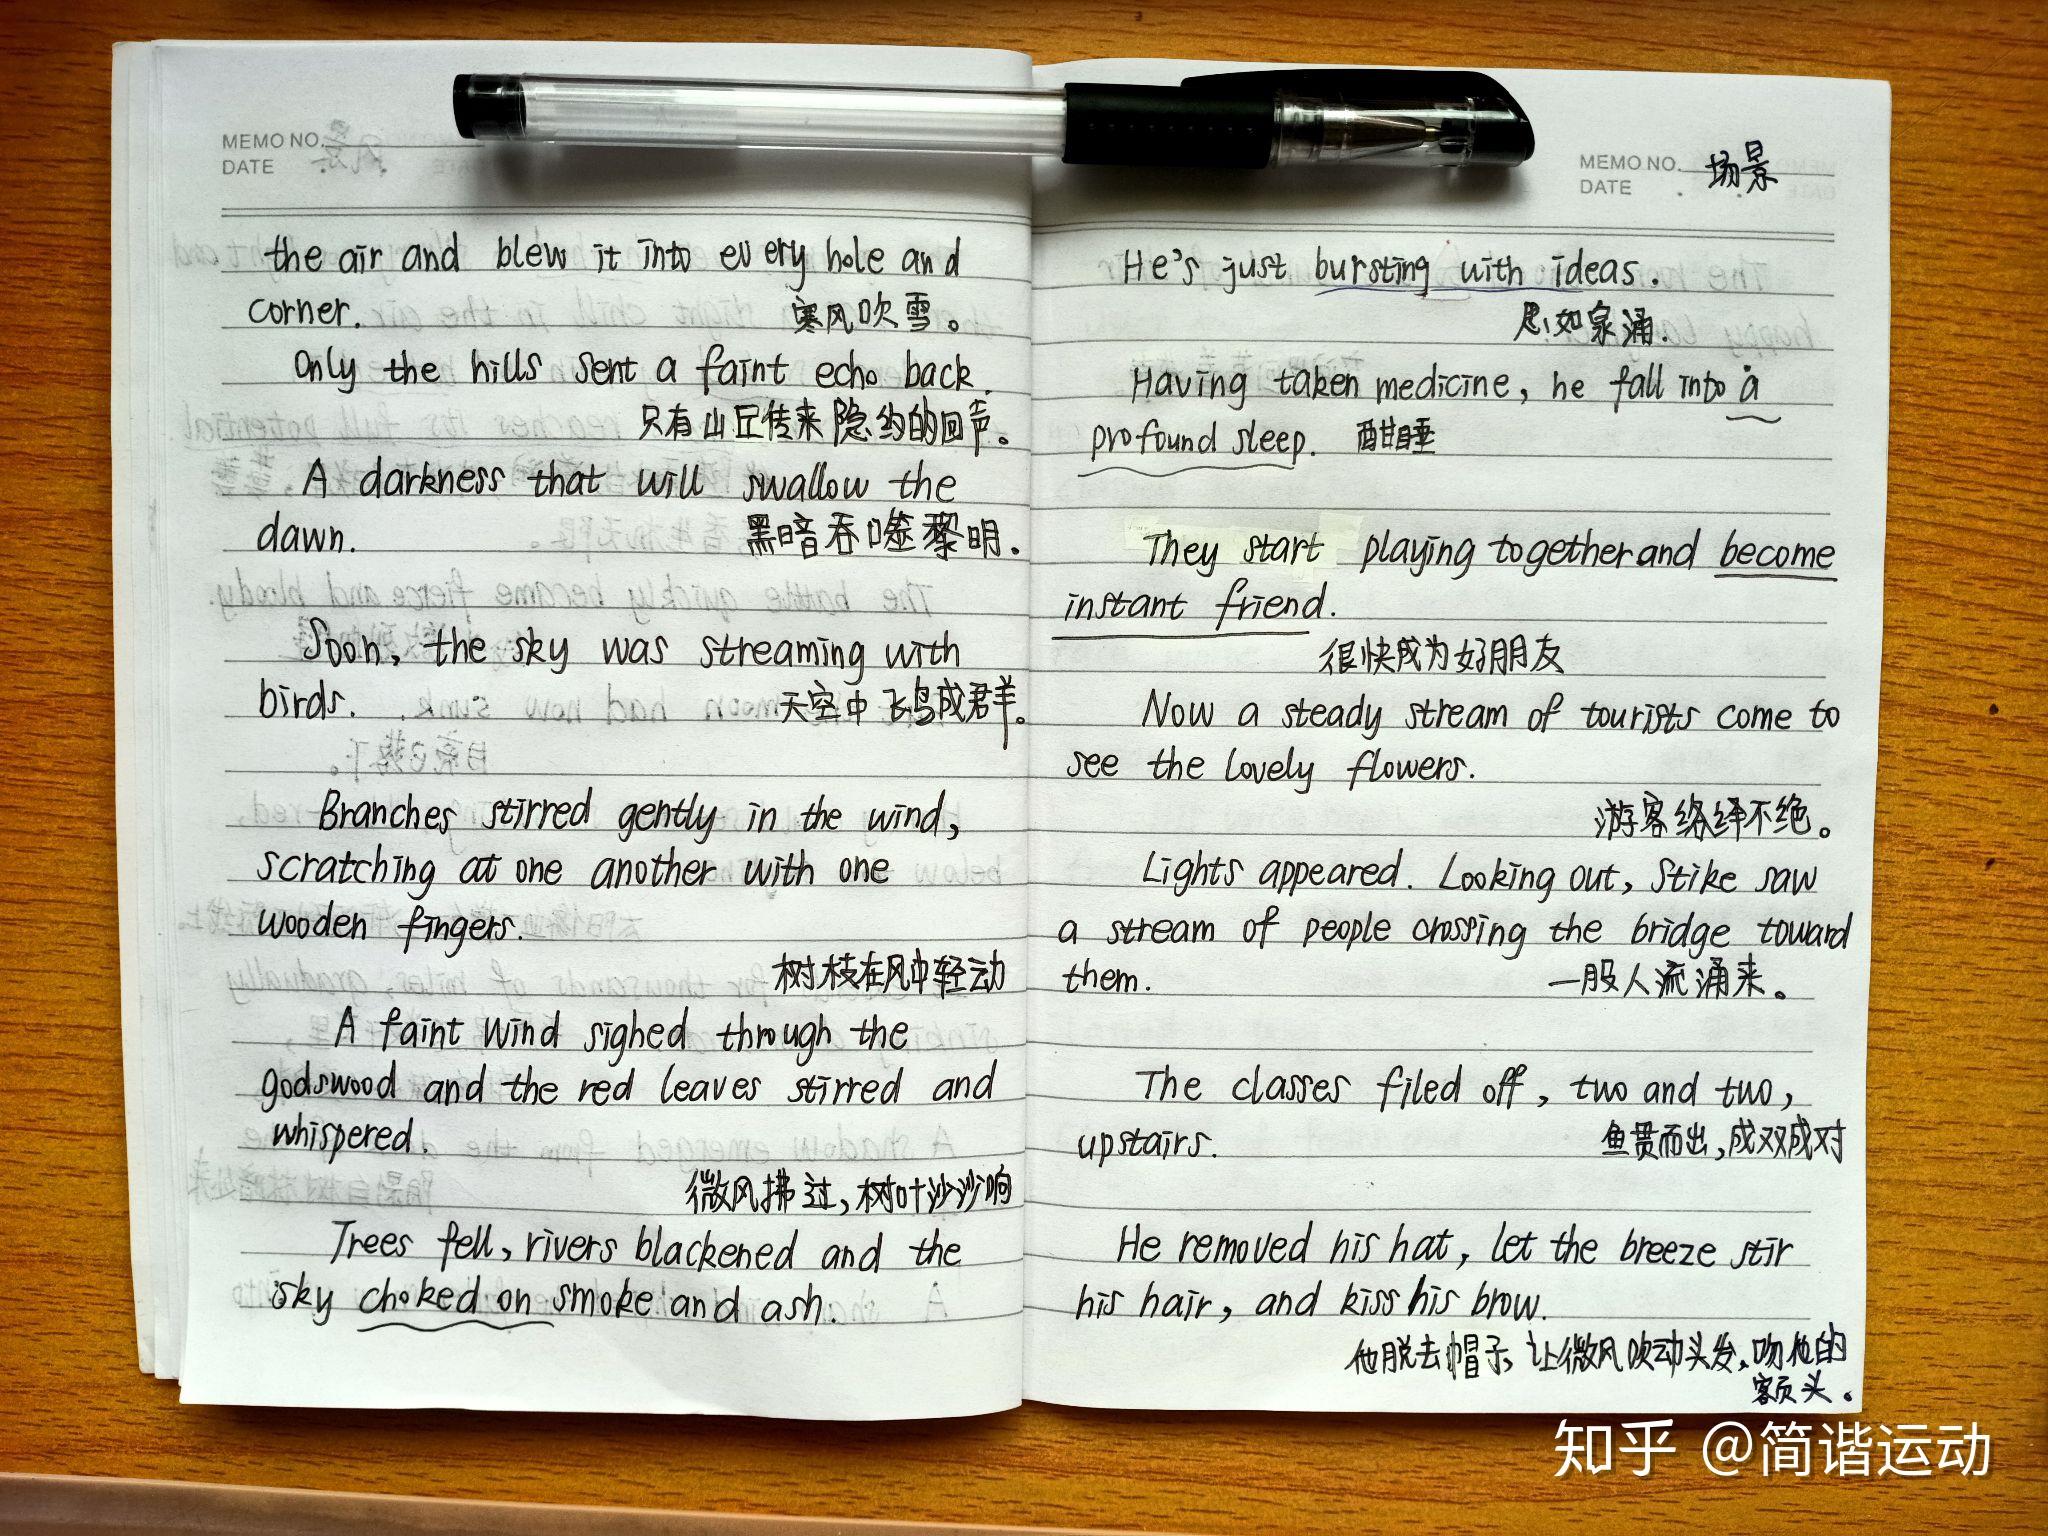 MEMO NO.
DATE
the air and blew it into every hole and
corner. 寒风吹雪。
Only the hills sent a faint echo back.
只有山丘传来隐约的回声。
A darkness that will swallow the
dawn. 黑暗吞噬黎明.
Soon, the sky was streaming with
birds. 天空中飞鸟成群。
Branches stirred gently in the wind,
scratching at one another with one
wooden fingers.
树枝在风中轻动
A faint wind sighed through the
godswood and the red leaves stirred and
whispered.
微风拂过,树叶沙沙响
Trees fell, rivers blackened and the
sky choked on smoke and ash.
MEMO NO. 场景
DATE
He's just bursting with ideas.
思如泉涌.
Having taken medicine, he fall into a
profound sleep. 酣睡
They start playing together and become
instant friend.
很快成为好朋友
Now a steady stream of tourists come to
see the lovely flowers.
游客络绎不绝。
Lights appeared. Looking out, Stike saw
a stream of people crossing the bridge toward
them. 一股人流涌来。
The classes filed off, two and two,
upstairs. 鱼贯而出,成双成对
He removed his hat, let the breeze stir
his hair, and kiss his brow.
他脱去帽子,让微风吹动头发,吻他的
额头。
知乎 @简谐运动